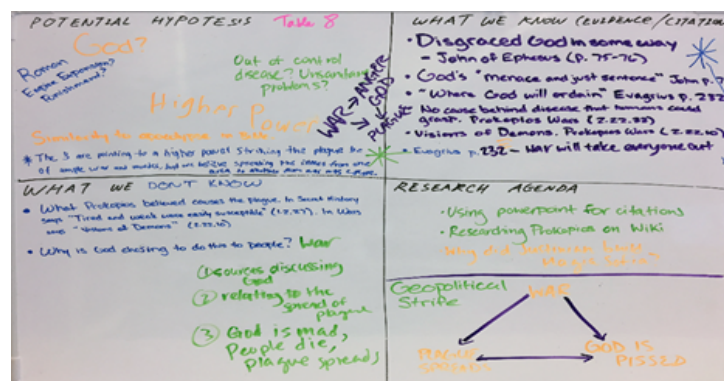 POTENTIAL HYPOTESIS Table 8
God?
Roman
Empire Expansion?
Punishment?
Out of control
disease? Unsanitary
problems?
WAR → ANGER
GOD
PLAGUE
Higher Power
* The 3 are pointing to a higher power striking the plague
WHAT WE KNOW (EVIDENCE/CITATION
• Disgraced God in some way
- John of Ephesus (p. 75-76)
• God's "menace and just sentence" John p.
• "Where God will ordain" Evagrius p. 232
No cause behind disease that humans could
grasp. Prokopios Wars (2.22.22)
• Visions of Demons. Prokopios Wars (2.22.10)
• Evagrius p. 232 - WAR will take everyone out
WHAT WE DON'T KNOW
• What Prokopios believed causes the plague. In Secret History
says "Tired and weak were easily susceptible" In Wars
"Visions of Demons" (2.22.10)
• Why is God chosing to do this to people? War
① sources discussing
God
② relating to the
spread of
plague
③ God is mad,
People die,
plague spreads
RESEARCH AGENDA
• Using powerpoint for citations
• Researching Prokopios on Wiki
Why did
Geopolitical
Strife
WAR
PLAGUE
SPREADS
GOD IS
PISSED